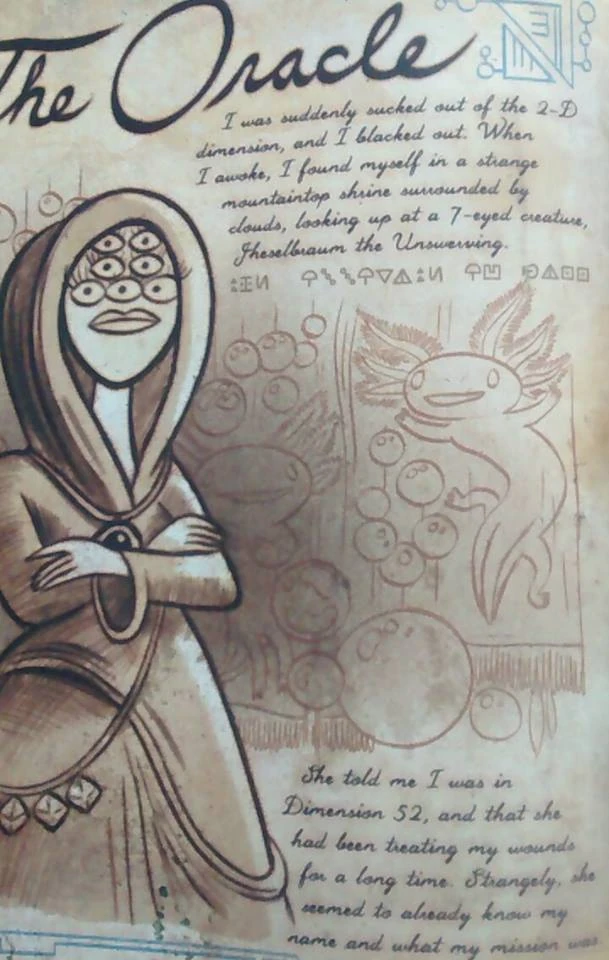 The Oracle
I was suddenly sucked out of the 2-D
dimension, and I blacked out. When
I awoke, I found myself in a strange
mountaintop shrine surrounded by
clouds, looking up at a 7-eyed creature,
Jheselbraum the Unswerving.
She told me I was in
Dimension 52, and that she
had been treating my wounds
for a long time. Strangely, she
seemed to already know my
name and what my mission was.